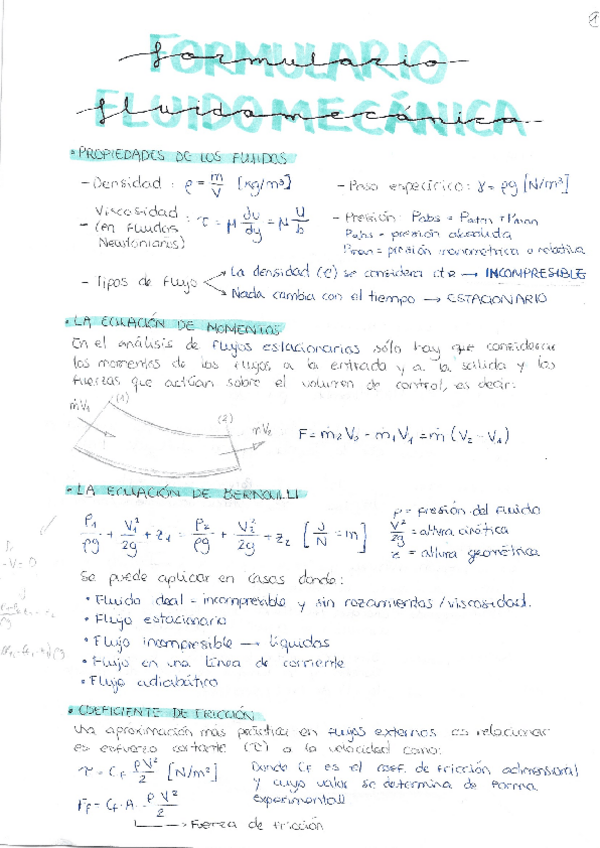 1
FORMULARIO
formulario
FLUIDOMECÁNICA
fluidomecánica
• PROPIEDADES DE LOS FLUIDOS
- Densidad : ρ = m/V [kg/m³]
- Peso específico : γ = ρg [N/m³]
- Viscosidad (en fluidos Newtonianos) : τ = μ du/dy = μ U/b
- Presión: Pabs = Patm + Pman
Pabs = presión absoluta
Pman = presión manométrica o relativa
- Tipos de flujo
La densidad (ρ) se considera cte → INCOMPRESIBLE
Nada cambia con el tiempo → ESTACIONARIO
• LA ECUACIÓN DE MOMENTOS
En el análisis de flujos estacionarios sólo hay que considerar
los momentos de los flujos a la entrada y a la salida y las
fuerzas que actúan sobre el volumen de control, es decir:
(1)
ṁV₁
(2)
ṁV₂
F = ṁ₂V₂ - ṁ₁V₁ = ṁ (V₂ - V₁)
• LA ECUACIÓN DE BERNOUILLI
P₁/ρg + V₁²/2g + z₁ = P₂/ρg + V₂²/2g + z₂ [J/N = m]
p = presión del fluido
V²/2g = altura cinética
z = altura geométrica
Se puede aplicar en casos donde:
• Fluido ideal - incompresible y sin rozamientos / viscosidad.
• Flujo estacionario
• Flujo incompresible → líquidos
• Flujo en una línea de corriente
• Flujo adiabático
• COEFICIENTE DE FRICCIÓN
Una aproximación más práctica en flujos externos es relacionar
es esfuerzo cortante (τ) a la velocidad como:
τ = Cf ρV²/2 [N/m²]
Ff = Cf · A · ρV²/2
Fuerza de fricción
Donde Cf es el coef. de fricción adimensional
y cuyo valor se determina de forma
experimental